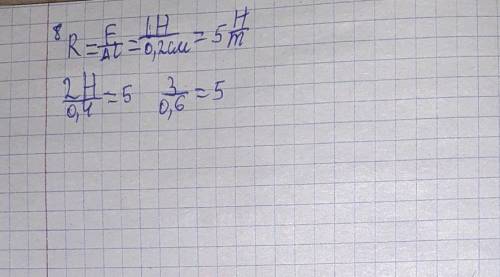 8 R = F/Δl = 1H/0,2см = 5 H/m
2H/0,4 = 5 3/0,6 = 5